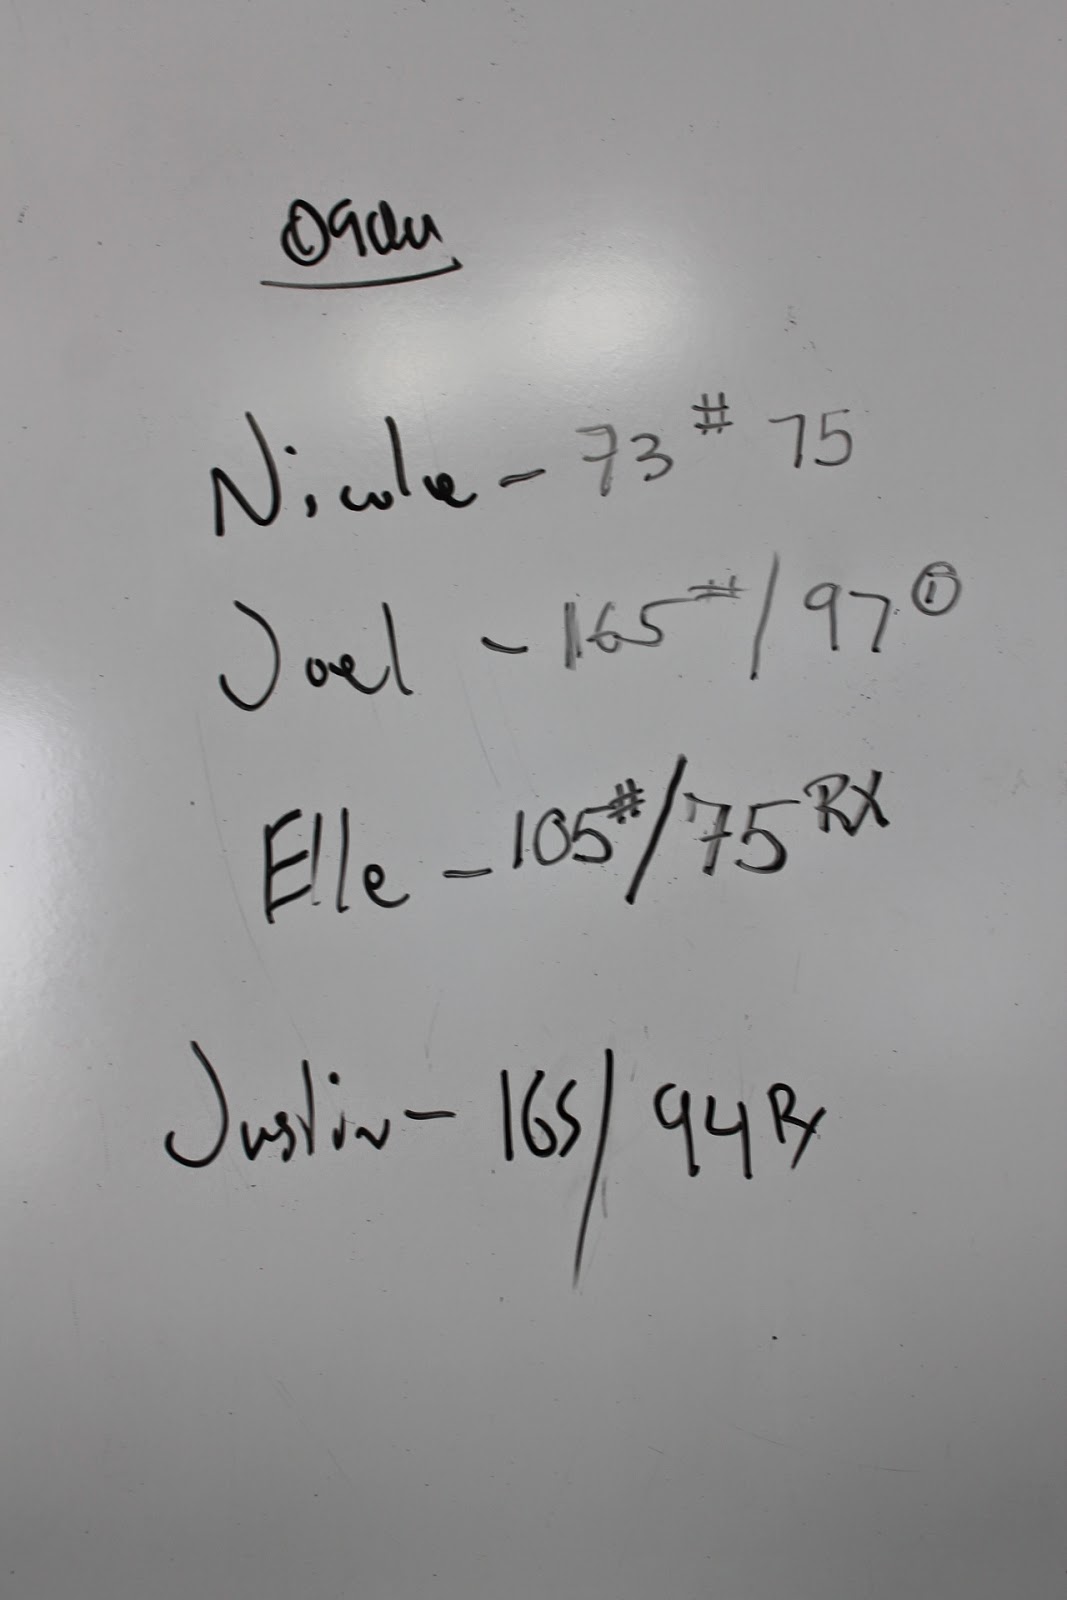 Nicole - 73# 75
Joel - 165# / 97
Elle - 105# / 75 RX
Justin - 165 / 94 Rx